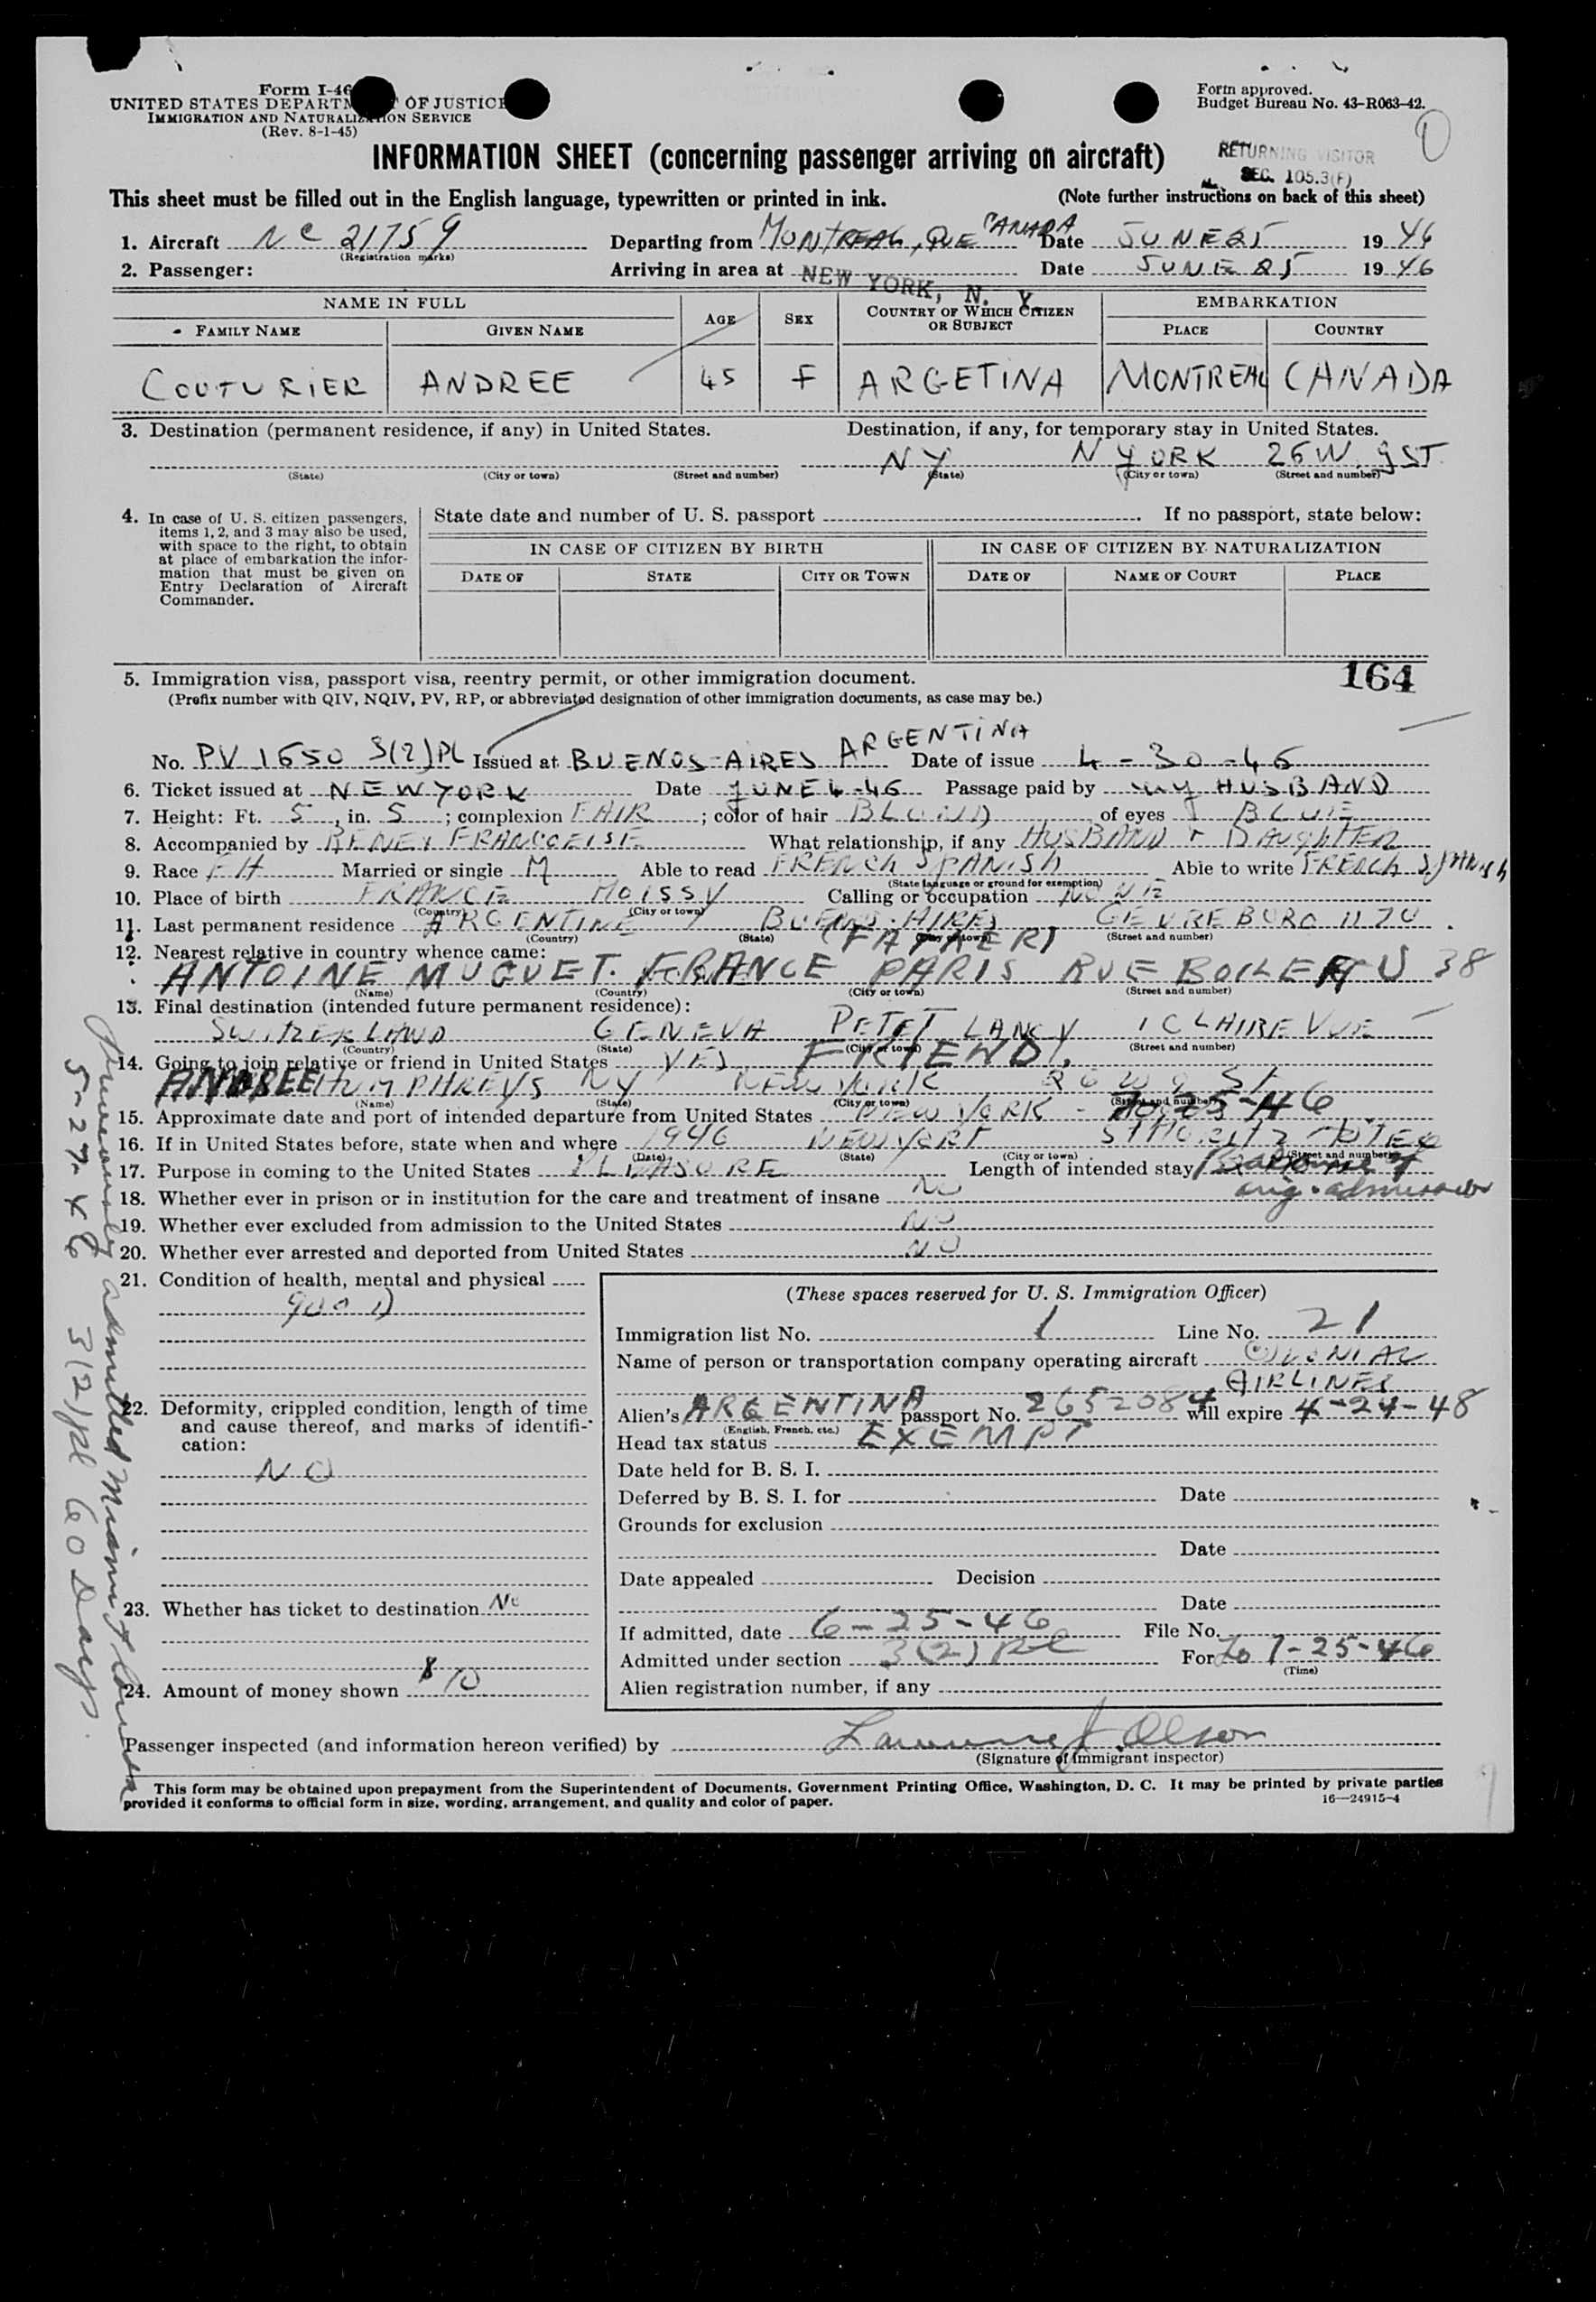 Form I-46
UNITED STATES DEPARTMENT OF JUSTICE
IMMIGRATION AND NATURALIZATION SERVICE
(Rev. 8-1-45)
Form approved.
Budget Bureau No. 43-R063-42.
INFORMATION SHEET (concerning passenger arriving on aircraft)
RETURNING VISITOR
SEC. 105.3(F)
This sheet must be filled out in the English language, typewritten or printed in ink. (Note further instructions on back of this sheet)
1. Aircraft NC 21759 Departing from MONTREAL, QUE CANADA Date JUNE 25 1946
(Registration marks)
2. Passenger: Arriving in area at NEW YORK, N. Y. Date JUNE 25 1946
NAME IN FULL AGE SEX COUNTRY OF WHICH CITIZEN OR SUBJECT EMBARKATION
FAMILY NAME GIVEN NAME PLACE COUNTRY
COUTURIER ANDREE 45 F ARGETINA MONTREAL CANADA
3. Destination (permanent residence, if any) in United States. Destination, if any, for temporary stay in United States.
NY N YORK 26 W. 9 ST
(State) (City or town) (Street and number) (State) (City or town) (Street and number)
4. In case of U. S. citizen passengers, items 1, 2, and 3 may also be used, with space to the right, to obtain at place of embarkation the information that must be given on Entry Declaration of Aircraft Commander.
State date and number of U. S. passport . If no passport, state below:
IN CASE OF CITIZEN BY BIRTH IN CASE OF CITIZEN BY NATURALIZATION
DATE OF STATE CITY OR TOWN DATE OF NAME OF COURT PLACE
5. Immigration visa, passport visa, reentry permit, or other immigration document. 164
(Prefix number with QIV, NQIV, PV, RP, or abbreviated designation of other immigration documents, as case may be.)
No. PV 1650 3(2)PL Issued at BUENOS-AIRES ARGENTINA Date of issue 4-30-46
6. Ticket issued at NEW YORK Date JUNE 4-46 Passage paid by my HUSBAND
7. Height: Ft. 5, in. 5; complexion FAIR; color of hair BLOND of eyes BLUE
8. Accompanied by RENE & FRANCOEISE What relationship, if any HUSBAND + DAUGHTER
9. Race FH Married or single M Able to read FRENCH SPANISH Able to write FRENCH Spanish
(State language or ground for exemption)
10. Place of birth FRANCE MOISSY Calling or occupation NONE
(Country) (City or town)
11. Last permanent residence ARGENTINE BUENOS-AIRES 1170
(Country) (State) (City or town) (Street and number)
12. Nearest relative in country whence came: (FATHER)
ANTOINE MUGUET. FRANCE PARIS RUE BOILEAU 38
(Name) (Country) (City or town) (Street and number)
13. Final destination (intended future permanent residence):
SWITZERLAND GENEVA PETET LANCY 1 CLAIRE VUE
(Country) (State) (City or town) (Street and number)
14. Going to join relative or friend in United States YES FRIEND.
ANDREE HUMPHREYS NY NEW YORK 26 W 9 ST
(Name) (State) (City or town) (Street and number)
15. Approximate date and port of intended departure from United States NEW YORK - 7-25-46
16. If in United States before, state when and where 1946 NEW YORK ST MORITZ HOTEL
(Date) (State) (City or town) (Street and number)
17. Purpose in coming to the United States PLEASURE Length of intended stay Balance of orig. admission
18. Whether ever in prison or in institution for the care and treatment of insane NO
19. Whether ever excluded from admission to the United States NO
20. Whether ever arrested and deported from United States NO
21. Condition of health, mental and physical
good
22. Deformity, crippled condition, length of time and cause thereof, and marks of identification:
NO
23. Whether has ticket to destination No
24. Amount of money shown $10
(These spaces reserved for U. S. Immigration Officer)
Immigration list No. 1 Line No. 21
Name of person or transportation company operating aircraft COLONIAL
AIRLINES
Alien's ARGENTINA passport No. 2652084 will expire 4-24-48
(English, French, etc.)
Head tax status EXEMPT
Date held for B. S. I.
Deferred by B. S. I. for Date
Grounds for exclusion
Date
Date appealed Decision
Date
If admitted, date 6-25-46 File No.
Admitted under section 3(2) PL For to 7-25-46
(Time)
Alien registration number, if any
Passenger inspected (and information hereon verified) by Lawrence J. Olson
(Signature of immigrant inspector)
This form may be obtained upon prepayment from the Superintendent of Documents, Government Printing Office, Washington, D. C. It may be printed by private parties
provided it conforms to official form in size, wording, arrangement, and quality and color of paper. 16—24915-4
Previously admitted Miami Florida
5-27-46 3(2)pl 60 Days.